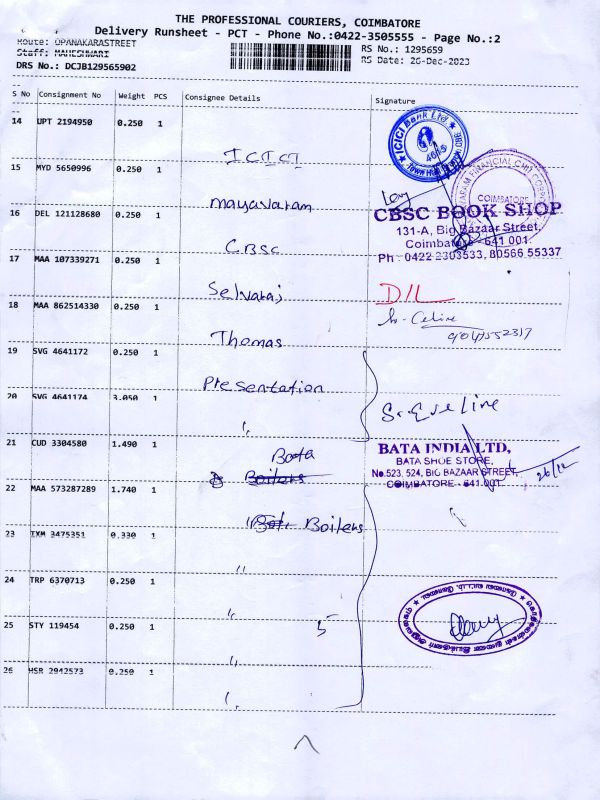 THE PROFESSIONAL COURIERS, COIMBATORE
Delivery Runsheet - PCT - Phone No.:0422-3505555 - Page No.:2
Route: OPANAKARASTREET
Staff: MAHESHWARI
RS No.: 1295659
DRS No.: DCJB129565902
RS Date: 26-Dec-2023
S No Consignment No Weight PCS Consignee Details Signature
14 UPT 2194950 0.250 1 ICICI
ICICI Bank Ltd
15 MYD 5650996 0.250 1 mayavaram
COIMBATORE
16 DEL 121128680 0.250 1 CBSC
CBSC BOOK SHOP
131-A, Big Bazaar Street,
Coimbatore - 641 001.
Ph : 0422 2303533, 80566 55337
17 MAA 107339271 0.250 1 Selvaraj
D/L
18 MAA 862514330 0.250 1 Thomas
19 SVG 4641172 0.250 1 Presentation
20 SVG 4641174 3.050 1 "
21 CUD 3304580 1.490 1 Bata
BATA INDIA LTD,
BATA SHOE STORE,
No.523, 524, BIG BAZAAR STREET,
COIMBATORE - 641.001.
26/12
22 MAA 573287289 1.740 1 " Boilers
23 IXM 3475351 0.330 1 "
24 TRP 6370713 0.250 1 "
25 STY 119454 0.250 1 "
5
26 HSR 2942573 0.250 1 "